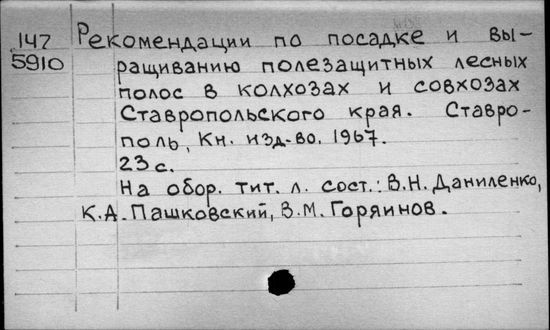 147 Рекомендации по посадке и вы-
5910 ращиванию полезащитных лесных
полос в колхозах и совхозах
Ставропольского края. Ставро-
поль, Кн. изд-во, 1967.
23 с.
На обор. тит. л. сост.: В.Н. Даниленко,
К.А. Пашковский, В.М. Горяинов.